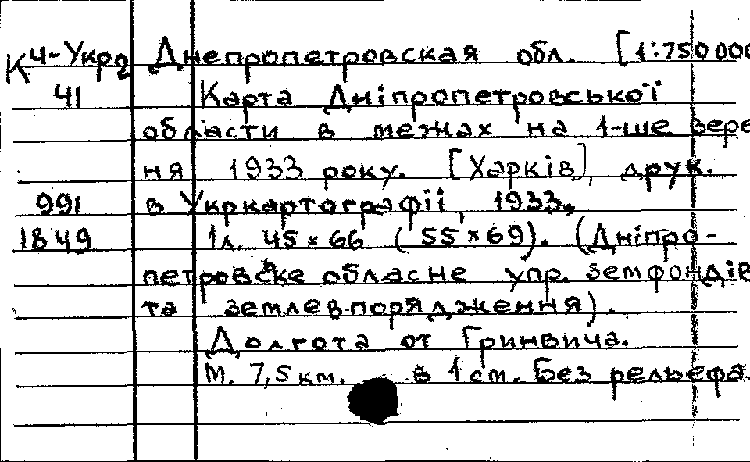 К Ч-Укр2 Днепропетровская обл. [1:750000
41 Карта Дніпропетровської
області в межах на 1-ше вере
ня 1933 року. [Харків], друк.
991 в Укркартографії, 1933.
1849 1л. 45×66 (55×69). (Дніпро-
петровске обласне упр. земфондів
та землевпорядження).
Долгота от Гринвича.
М. 7,5 км. в 1 см. Без рельефа.